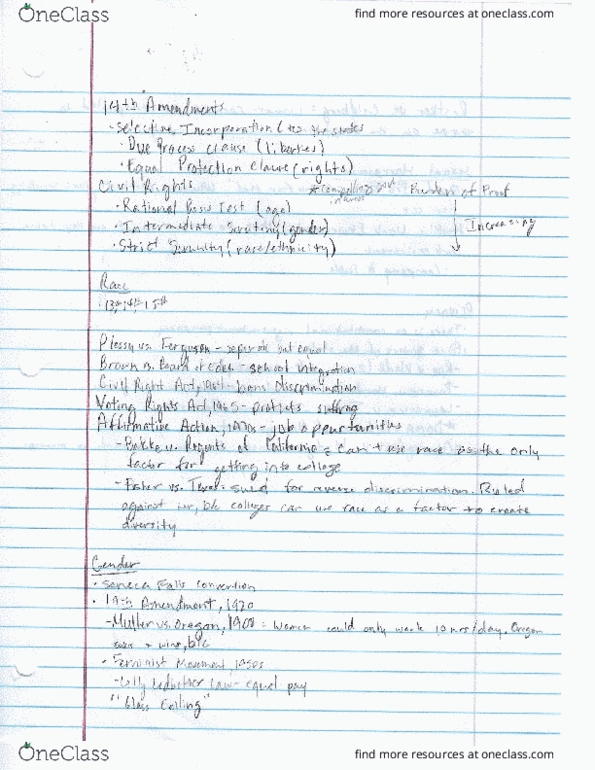 OneClass
find more resources at oneclass.com
14th Amendments
· Selective Incorporation (to the states
· Due Process Clause (liberties)
· Equal Protection Clause (rights)
Civil Rights
* compelling
Burden of Proof
· Rational Basis Test (age)
· Intermediate Scrutiny (gender)
Increasing
· Strict Scrutiny (race/ethnicity)
Race
13th, 14th, 15th
Plessy vs. Ferguson - separate but equal
Brown v. Board of Edu - school integration
Civil Right Act, 1964 - bans Discrimination
Voting Rights Act, 1965 - protects suffrag
Affirmative Action, 1970s - job opportunities
- Bakke v. Regents of California: can't use race as the only
factor for getting into college
- Fisher vs. Texas: sued for reverse discrimination. Ruled
against her, b/c colleges can use race as a factor to create
diversity
Gender
· Seneca Falls Convention
· 19th Amendment, 1920
- Muller vs. Oregon, 1908: Women could only work 10 hrs/day. Oregon
b/c
· Feminist Movement, 1950s
- Lilly Ledbetter Law - equal pay
"Glass Ceiling"
OneClass
find more resources at oneclass.com